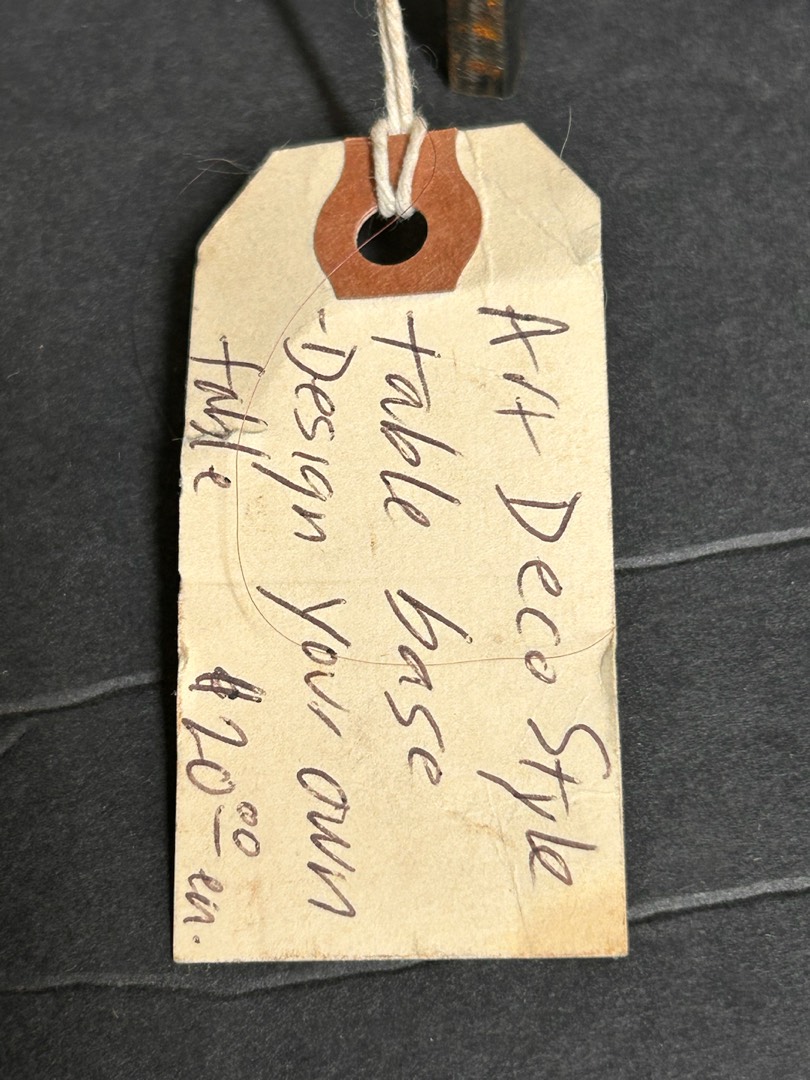 Art Deco Style
table base
-Design your own
table $20.00 ein.